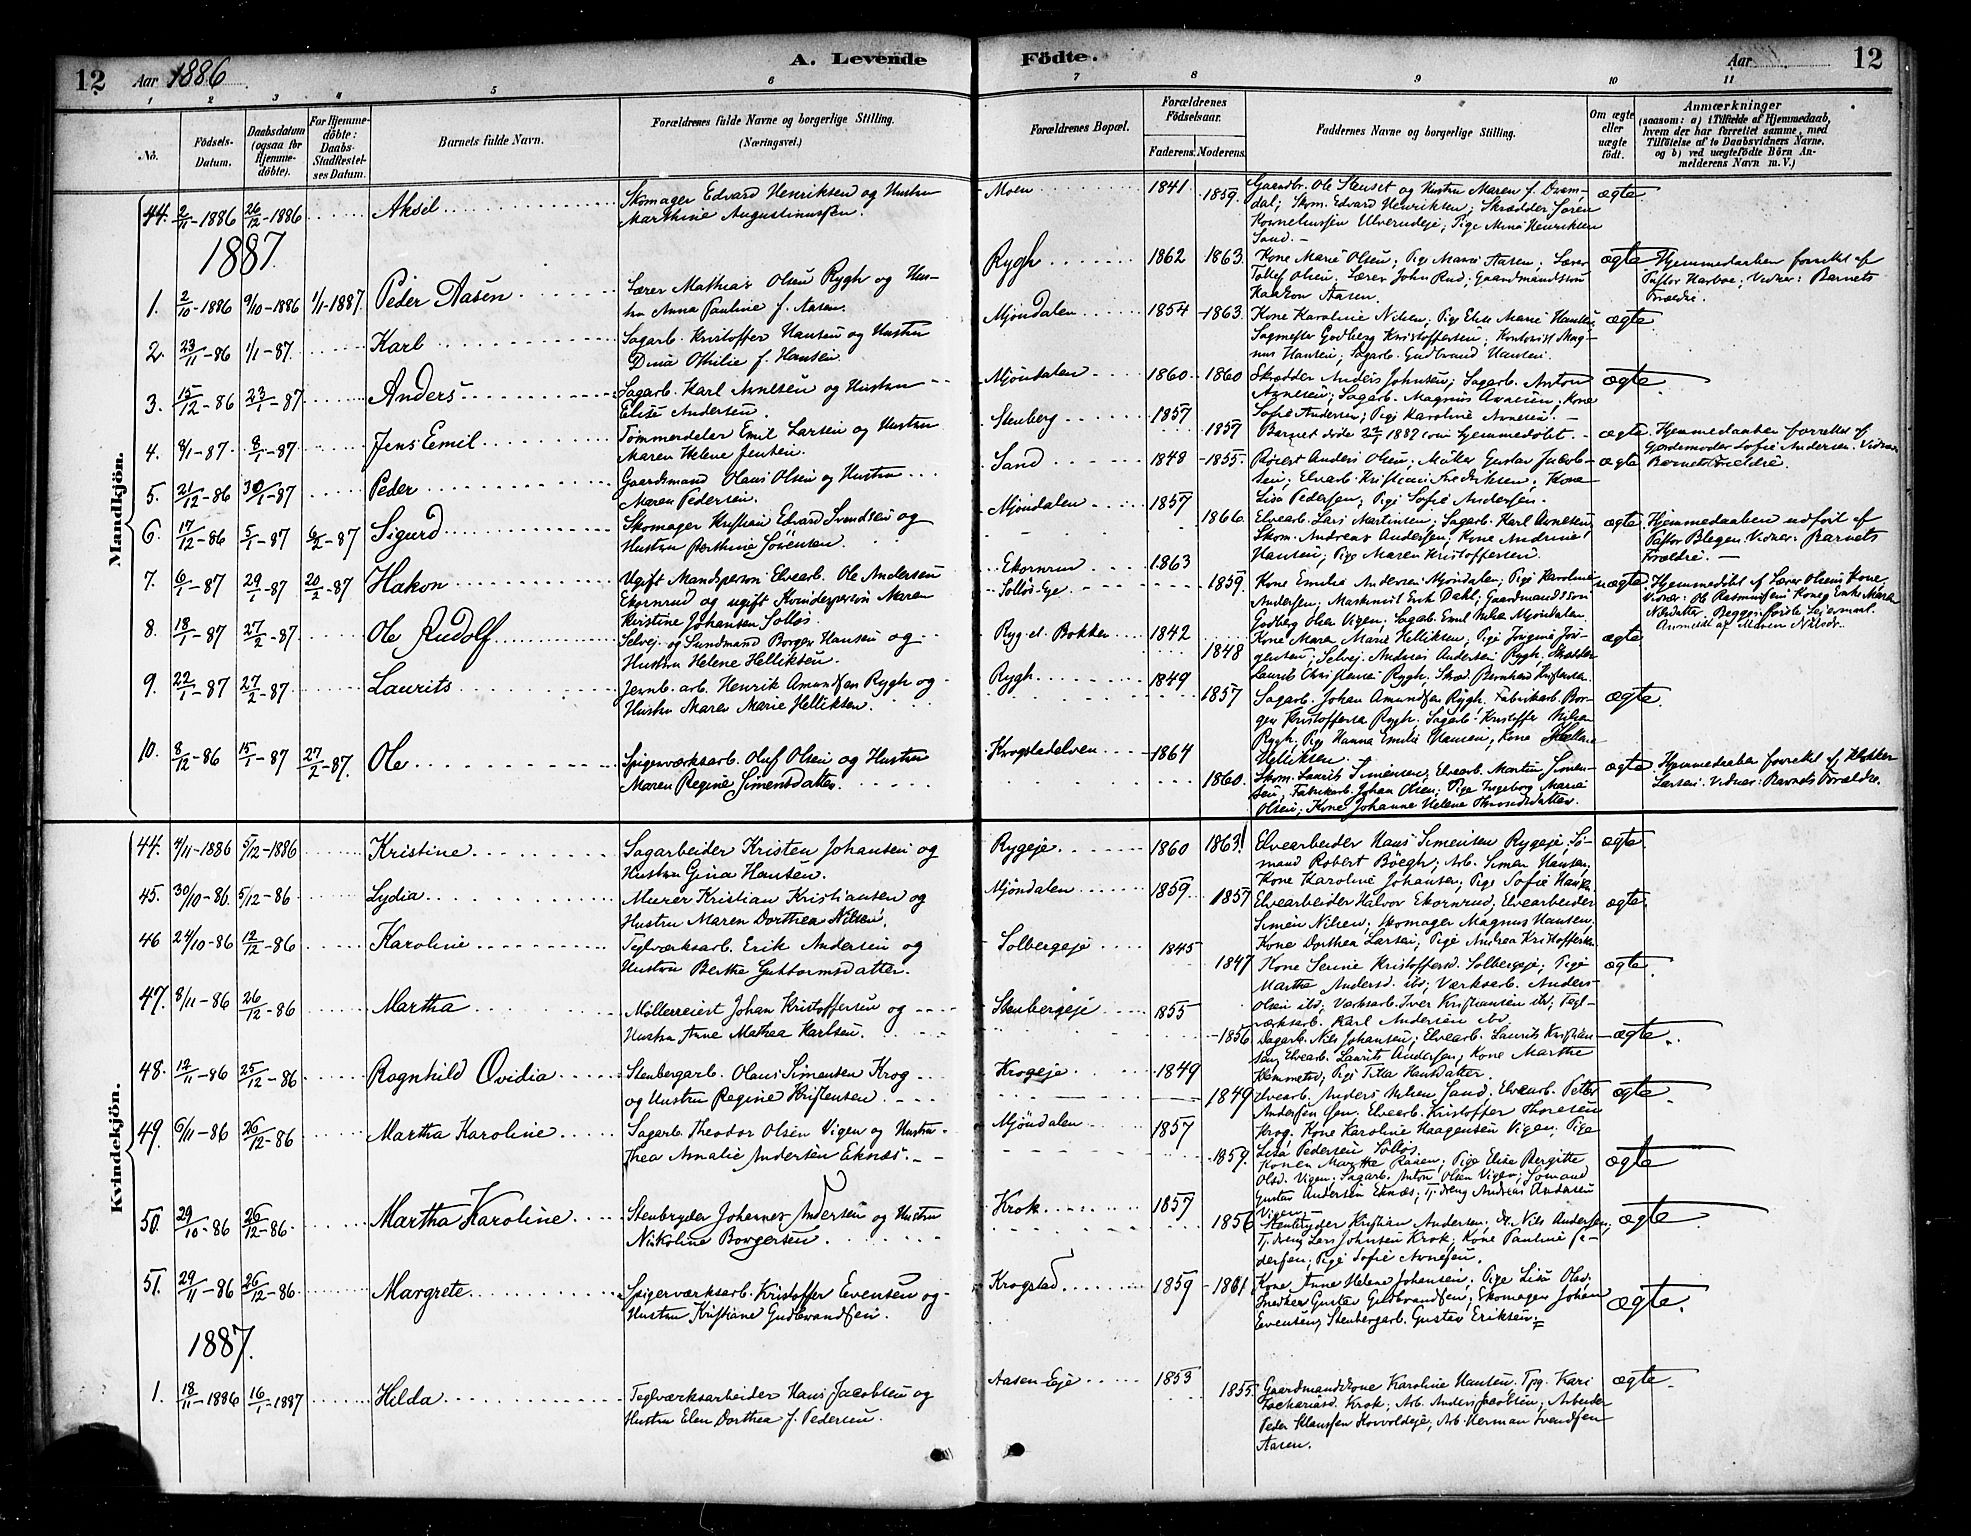 12 Aar 1886 A. Levende Födte. Aar 12
1 2 3 4 5 6 7 8 9 10 11
No.
Födsels-Datum.
Daabsdatum (ogsaa for Hjemmedöbte).
For Hjemmedöbte: Daabs-Stadfæstelses Datum.
Barnets fulde Navn.
Forældrenes fulde Navne og borgerlige Stilling.
(Næringsvei.)
Forældrenes Bopæl.
Forældrenes Födselsaar.
Faderens. Moderens.
Faddernes Navne og borgerlige Stilling.
Om ægte eller uægte födt.
Anmærkninger
(saasom: a) i Tilfælde af Hjemmedaab,
hvem der har forrettet samme, med
Tilföielse af to Daabsvidners Navne,
og b) ved uægtefödte Börn Anmelderens Navn m. V.)
Mandkjön.
44. 2/11-1886 26/12-1886 Aksel Skomager Edvard Henriksen og Hustru
Marthine Augustinussen.
Moen 1841 1859. Gaardbr. Ole Stenset og Hustru Maren f. Dramdal; Skom. Edvard Henriksen; Skrædder Søren
Korneliussen Ulverudeje; Pige Mina Henriksen
Sand. ægte
1887.
1. 2/10-1886 9/10-1886 1/1-1887. Peder Aasen Lærer Mathias Olsen Rygh og Hustru Anna Pauline f. Aasen.
Rygh 1862 1863. Kone Marie Olsen; Pige Marie Aasen; Lærer
Tollef Olsen; Lærer John Rud; Gaardmandssøn
Haakon Aasen. ægte Hjemmedaaben forrettet af
Pastor Harboe; Vidner: Barnets
Forældre.
2. 23/11-86 1/1-87 Karl Sagarb. Kristoffer Hansen og Hustru
Dina Othilie f. Hansen.
Mjøndalen 1854 1863. Kone Karoline Nilsen; Pige Elise Marie Hansen;
Sagmester Godberg Kristoffersen; Kontorist Magnus Hansen; Sagarb. Gudbrand Hansen. ægte
3. 15/12-86 23/1-87 Anders Sagarb. Karl Avnesen og Hustru
Elise Andersen.
Mjøndalen 1860 1860 Skrædder Anders Johnsen; Sagarb. Anton
Avnesen; Sagarb. Magnus Avnesen; Kone
Sofie Andersen; Pige Karoline Avnesen. ægte.
4. 8/1-87 8/1-87 Jens Emil Tømmerdeler Emil Larsen og Hustru
Maren Helene Jensen.
Stenberg 1857 1857 Barnet døde 22/1 1887 som hjemmedøbt. ægte. Hjemmedaaben forrettet af
Gjordemoder Sofie Andersen. Vidner
Barnets Forældre.
5. 21/12-86 30/1-87 Peder Gaardmand Olaus Olsen og Hustru
Maren Pedersen.
Sand 1848 1855. Røiert Anders Olsen; Møller Gustav Jacobsen; Elvearb. Kristian Fredriksen; Kone
Lisa Pedersen; Pige Sofie Andersen. ægte
6. 17/12-86 5/1-87 6/2-87 Sigurd Skomager Kristian Edvard Svendsen og
Hustru Berthine Sørensen.
Mjøndalen 1857 1866. Elvearb. Lars Martinsen; Sagarb. Karl Avnesen;
Skom. Andreas Andersen; Kone Andrine
Hansen; Pige Maren Kristoffersen. ægte. Hjemmedaaben udført af
Pastor Blegen. Vidner: Barnets
Forældre.
7. 6/1-87 29/1-87 20/2-87 Hakon Ugift Mandsperson Elvearb. Ole Andersen
Ekornrud og ugift Kvindeperson Maren
Kristine Johansen Solløs.
Ekornrud Solløs-Eje 1863 1859. Kone Emilia Andersen Mjøndalen; Pige Karoline
Andersen; Maskinist Erik Dahl; Gaardmandssøn
Godberg Olsen Vigen; Sagarb. Emil Nilsen Mjøndalen uægte Hjemmedøbt af Lærer Olsens Kone,
Vidner: Ole Rasmussens Kone og Enke Maren
Nilsdatter. Begges første Lejermaal.
Anmeldt af Maren Nilsdr.
8. 18/1-87 27/2-87 Ole Rudolf Selvej. og Sundmand Borger Hansen og
Hustru Helene Helliksen.
Ryg el. Bokker 1842 1848 Kone Maren Marie Helliksen; Pige Jørgine Jørgensen; Selvej. Andreas Andersen Rygh; Skrædder
Laurits Christiansen Rygh; Skræd. Bernhard Kristensen ægte
9. 22/1-87 27/2-87 Laurits Jernb. arb. Henrik Amundsen Rygh og
Hustru Maren Marie Helliksen.
Rygh. 1849 1857 Sagarb. Johan Amundsen Rygh. Fabrikarb. Borger Kristoffersen Rygh. Sagarb. Kristoffer Nilsen
Rygh, Pige Hanna Emilie Hansen; Kone
Helliksen. ægte.
10. 8/12-86 15/1-87 27/2-87. Ole Spigerværksarb. Oluf Olsen og Hustru
Maren Regine Simensdatter.
Krogstadelven 1864 1860. Skom. Laurits Simensen; Elvearb. Martin Simensen; Fabrikarb. Johan Olsen; Pige Ingeborg Marie
Olsen; Kone Johanne Helene Thronsdatter. ægte. Hjemmedaaben forrettet af Klokker
Larsen: Vidner: Barnets Forældre.
Kvindekjön.
44. 4/11-1886 5/12-1886 Kristine Sagarbeider Kristen Johansen og
Hustru Gina Hansen.
Rygeje 1860 1863. Elvearbeider Hans Simensen Rygeje; Sømand Robert Böegh; Arb. Simen Hansen,
Kone Karoline Johansen; Pige Sofie Hansen ægte.
45. 30/10-86. 5/12-86 Lydia Murer Kristian Kristiansen og
Hustru Maren Dorthea Nilsen.
Mjøndalen 1859. 1857 Elvearbeider Halvor Ekornrud; Elvearbeider
Simen Nilsen; Skomager Magnus Hansen,
Kone Dorthea Larsen; Pige Andrea Kristoffersen ægte.
46 24/10-86 12/12-86 Karoline Teglværksarb. Erik Andersen og
Hustru Berthe Guttormsdatter.
Solbergeje 1845 1847 Kone Serine Kristoffersd. Solbergeje; Pige
Martha Andersd. ibd; Værksarb. Anders
Olsen ibd; Værksarb. Iver Kristiansen ibd; Teglværksarb. Karl Andersen ibd. ægte.
47. 8/11-86 26/12-86 Martha Møllerreiest Johan Kristoffersen og
Hustru Anne Mathea Karlsen.
Stenbergeje 1855 1856 Dagarb. Nils Johansen; Elvearb. Laurits Kristiansen; Elvearb. Laurits Andersen; Kone Marthe
Klemmetsd; Pige Tilla Hansdatter. ægte.
48. 12/11-86 25/12-86 Ragnhild Ovidia Stenbergarb. Olaus Simensen Krog
og Hustru Regine Kristensen.
Krogeje 1849 1849 Elvearb. Anders Nilsen Sand. Elvearb. Petter
Andersen Gen. Elvearb. Kristoffer Thoresen
Krog. Kone Karoline Haagensen Vigen; Pige
Lisa Pedersen Solløs. ægte.
49. 6/11-86 26/12-86 Martha Karoline Sagarb. Theodor Olsen Vigen og Hustru
Thea Amalie Andersen Eknæs.
Mjøndalen 1857 1859. Konen Marthe Raaen; Pige Elise Bergitte
Olsd. Vigen; Sagarb. Anton Olsen Vigen; Sømand
Gustav Andersen Eknæs; Tj. dreng Andreas Andersen
Vigen. ægte
50. 29/10-86 26/12-86 Martha Karoline Stenbryder Johannes Andersen og Hustru
Nikoline Borgersen.
Krok 1857 1856 Stenbryder Kristian Andersen; Nils Andersen;
Tj. dreng Lars Johnsen Krok; Kone Pauline Pedersen; Pige Sofie Avnesen. ægte
51. 29/11-86 26/12-86 Margrete Spigerværksarb. Kristoffer Evensen og
Hustru Kristiane Gudbrandsen.
Krogstad 1859 1861 Kone Anne Helene Johansen; Pige Lisa Olsd;
Snedker Gustav Gudbrandsen; Skomager Johan
Evensen; Stenbergarb. Gustav Eriksen. ægte.
1887.
1. 18/11-1886 16/1-1887 Hilda Teglværksarbeider Hans Jacobsen og
Hustru Elen Dorthea f. Pedersen.
Aasen Eje 1853 1855 Gaardmandskone Karoline Hansen. Tpg. Kari
Zachariasd. Krok; Arb. Anders Jacobsen; Arbeider
Peder Klaussen Horvoldeje; Arb. Herman Svendsen
Aasen. ægte.